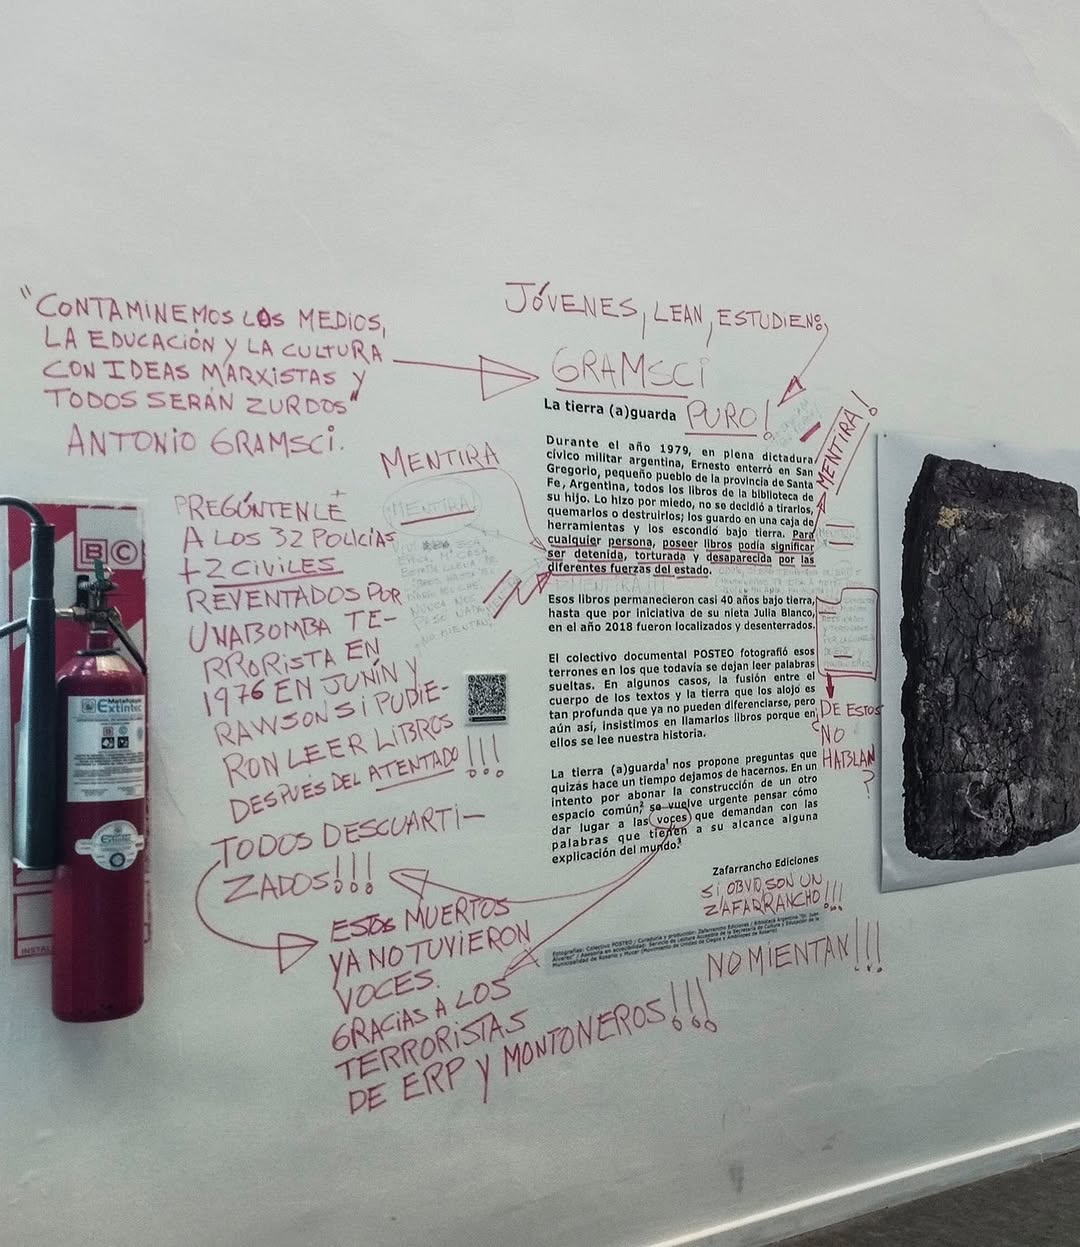 "CONTAMINEMOS LOS MEDIOS,
LA EDUCACIÓN Y LA CULTURA
CON IDEAS MARXISTAS Y
TODOS SERÁN ZURDOS"
ANTONIO GRAMSCI.
JÓVENES, LEAN, ESTUDIEN,
GRAMSCI
PURO!
La tierra (a)guarda
Durante el año 1979, en plena dictadura
cívico militar argentina, Ernesto enterró en San
Gregorio, pequeño pueblo de la provincia de Santa
Fe, Argentina, todos los libros de la biblioteca de
su hijo. Lo hizo por miedo, no se decidió a tirarlos,
quemarlos o destruirlos; los guardo en una caja de
herramientas y los escondió bajo tierra. Para
cualquier persona, poseer libros podía significar
ser detenida, torturada y desaparecida por las
diferentes fuerzas del estado.
Esos libros permanecieron casi 40 años bajo tierra,
hasta que por iniciativa de su nieta Julia Blanco,
en el año 2018 fueron localizados y desenterrados.
El colectivo documental POSTEO fotografió esos
terrones en los que todavía se dejan leer palabras
sueltas. En algunos casos, la fusión entre el
cuerpo de los textos y la tierra que los alojo es
tan profunda que ya no pueden diferenciarse, pero
aún así, insistimos en llamarlos libros porque en
ellos se lee nuestra historia.
La tierra (a)guarda¹ nos propone preguntas que
quizás hace un tiempo dejamos de hacernos. En un
intento por abonar la construcción de un otro
espacio común,² se vuelve urgente pensar cómo
dar lugar a las voces que demandan con las
palabras que tienen a su alcance alguna
explicación del mundo.³
Zafarrancho Ediciones
SI OBVIO, SON UN
ZAFARRANCHO!!!
Fotografías: Colectivo POSTEO / Curaduría y producción: Zafarrancho Ediciones / Biblioteca Argentina "Dr. Juan
Álvarez" / Asesoría en accesibilidad: Servicio de Lectura Accesible de la Secretaría de Cultura y Educación de la
Municipalidad de Rosario y Mucar (Movimiento de Unidad de Ciegos y Amblíopes de Rosario).
NO MIENTAN!!!
MENTIRA!
MENTIRA
MENTIRA
NO MIENTAN!
DE ESTOS
NO
HABLAN
?
PREGÚNTENLE
A LOS 32 POLICÍAS
+2 CIVILES
REVENTADOS POR
UNA BOMBA TE-
RRORISTA EN
1976 EN JUNÍN Y
RAWSON SI PUDIE-
RON LEER LIBROS
DESPUÉS DEL ATENTADO!!!
TODOS DESCUARTI-
ZADOS!!!
ESTOS MUERTOS
YA NO TUVIERON
VOCES.
GRACIAS A LOS
TERRORISTAS
DE ERP Y MONTONEROS!!!
B C
Extintec
Extintec